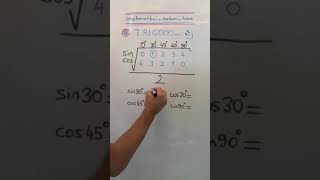 TRIGOOO...
0° 30° 45° 60° 90°
sin 0 1 2 3 4
cos 4 3 2 1 0
2
sin30°= cos30°=
cos45° sin90°=